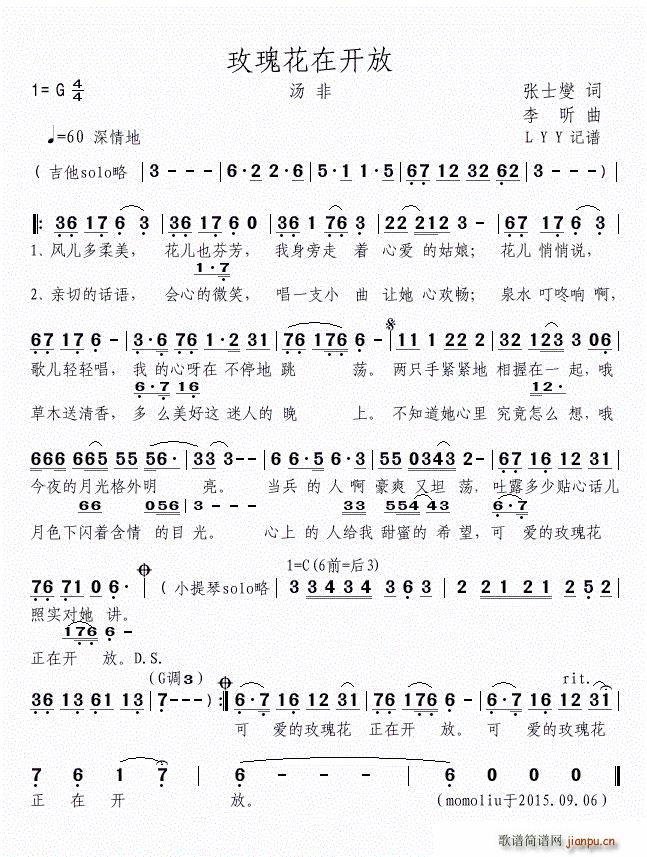 玫瑰花在开放
1=G 4/4 汤 非 张士燮 词
李 昕 曲
♩=60 深情地 LYY记谱
(吉他solo略 | 3 - - - | 6·2 2·6 | 5·1 1·5 | 67 12 32 62 | 3 - - - )
‖: 36 17 6 3 | 36 17 6 0 | 36 1 76 3 | 22 212 3 - | 67 17 6 3 |
1、风儿多柔美， 花儿也芬芳， 我身旁走 着 心爱 的姑娘； 花儿 悄悄说，
1·7
2、亲切的话语， 会心的微笑， 唱一支小 曲 让她 心欢畅； 泉水 叮咚响 啊，
67 17 6 - | 3·6 76 1·2 31 | 76 176 6 - | 11 11 222 3 | 32 123 3 06 |
歌儿轻轻唱， 我 的 心呀在 不停地 跳 荡。 两只手紧紧地 相握在 一 起，哦
6·7 16 12·
草木送清香， 多 么美好这 迷人的 晚 上。 不知道她心里 究竟怎么 想，哦
666 665 55 56· | 33 3 - - | 6 6·5 6·3 | 55 0343 2 - | 67 16 12 31 |
今夜的月光格外明 亮。 当兵 的 人 啊 豪爽 又坦 荡， 吐露多少贴心话儿
66 056 3 33 554 43 6·7
月色下闪着含情 的目 光。 心上 的 人给我 甜蜜的 希 望，可 爱的玫瑰花
1=C(6前=后3)
76 71 0 6· | (小提琴solo略 | 33 434 3 63 | 2 21 221 2 52 |
照实对她 讲。
176 6 -
正在开 放。D.S.
(G调3) rit.
36 13 61 31 | 7 - - - ) :‖ 6·7 16 12 31 | 76 176 6 - | 6·7 16 12 31 |
可 爱的玫瑰花 正在开 放。可 爱的玫瑰花
7 6 1 7 | 6 - - - | 6 0 0 0 ‖
正 在 开 放。 (momoliu于2015.09.06)
歌谱简谱网
jianpu.cn